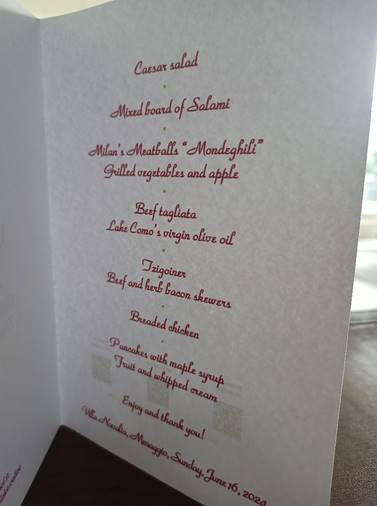 Caesar salad
Mixed board of Salami
Milan's Meatballs "Mondeghili"
Grilled vegetables and apple
Beef tagliata
Lake Como's virgin olive oil
Tzigoiner
Beef and herb bacon skewers
Breaded chicken
Pancakes with maple syrup
Fruit and whipped cream
Enjoy and thank you!
Villa Novalia, Menaggio, Sunday, June 16, 2024